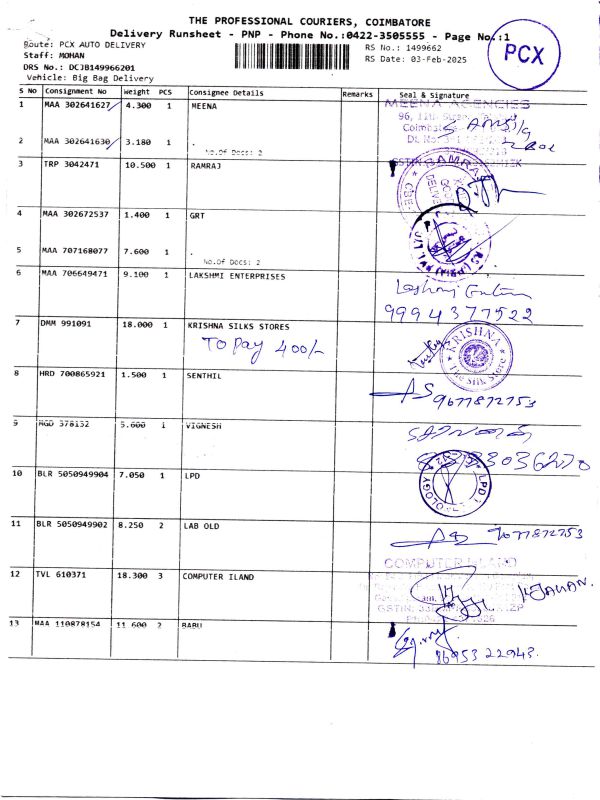 THE PROFESSIONAL COURIERS, COIMBATORE
Delivery Runsheet - PNP - Phone No.:0422-3505555 - Page No.:1
Route: PCX AUTO DELIVERY
RS No.: 1499662
PCX
Staff: MOHAN
RS Date: 03-Feb-2025
DRS No.: DCJB149966201
Vehicle: Big Bag Delivery
S No Consignment No Weight PCS Consignee Details Remarks Seal & Signature
1 MAA 302641627 4.300 1 MEENA
MEENA AGENCIES
2 MAA 302641630 3.180 1 .
No.Of Docs: 2
3 TRP 3042471 10.500 1 RAMRAJ
4 MAA 302672537 1.400 1 GRT
5 MAA 707168077 7.600 1 .
No.Of Docs: 2
6 MAA 706649471 9.100 1 LAKSHMI ENTERPRISES
9994377522
7 DMM 991091 18.000 1 KRISHNA SILKS STORES
To Pay 400/-
KRISHNA
The Silk Store
8 HRD 700865921 1.500 1 SENTHIL
9677872753
9 MGD 378132 5.600 1 VIGNESH
10 BLR 5050949904 7.050 1 LPD
11 BLR 5050949902 8.250 2 LAB OLD
9677872753
12 TVL 610371 18.300 3 COMPUTER ILAND
COMPUTER ISLAND
13 MAA 110878154 11.600 2 BABU
86953 22943.